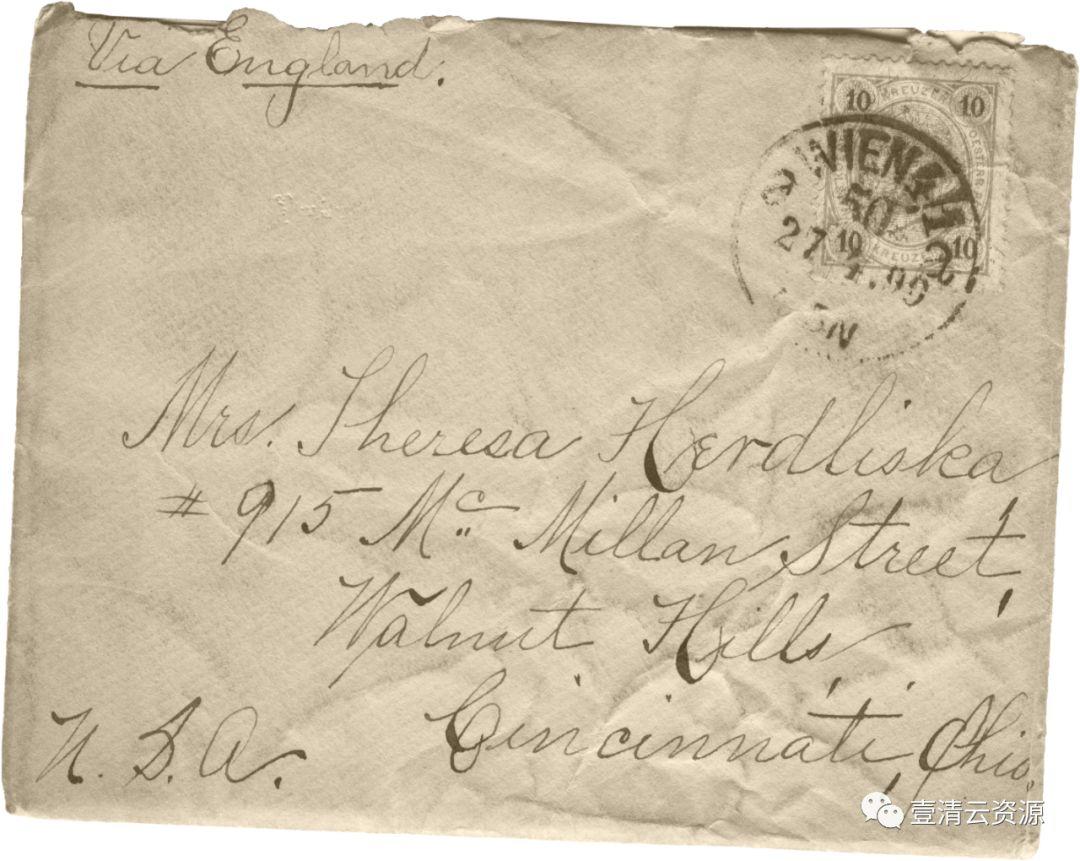 Via England.
10 KREUZER 10
WIEN 4/1
50
27
10 KREUZER 10
Mrs. Theresa Herdliska
# 915 Mc Millan Street,
Walnut Hills,
Cincinnati, Ohio.
U. S. A.
壹清云资源